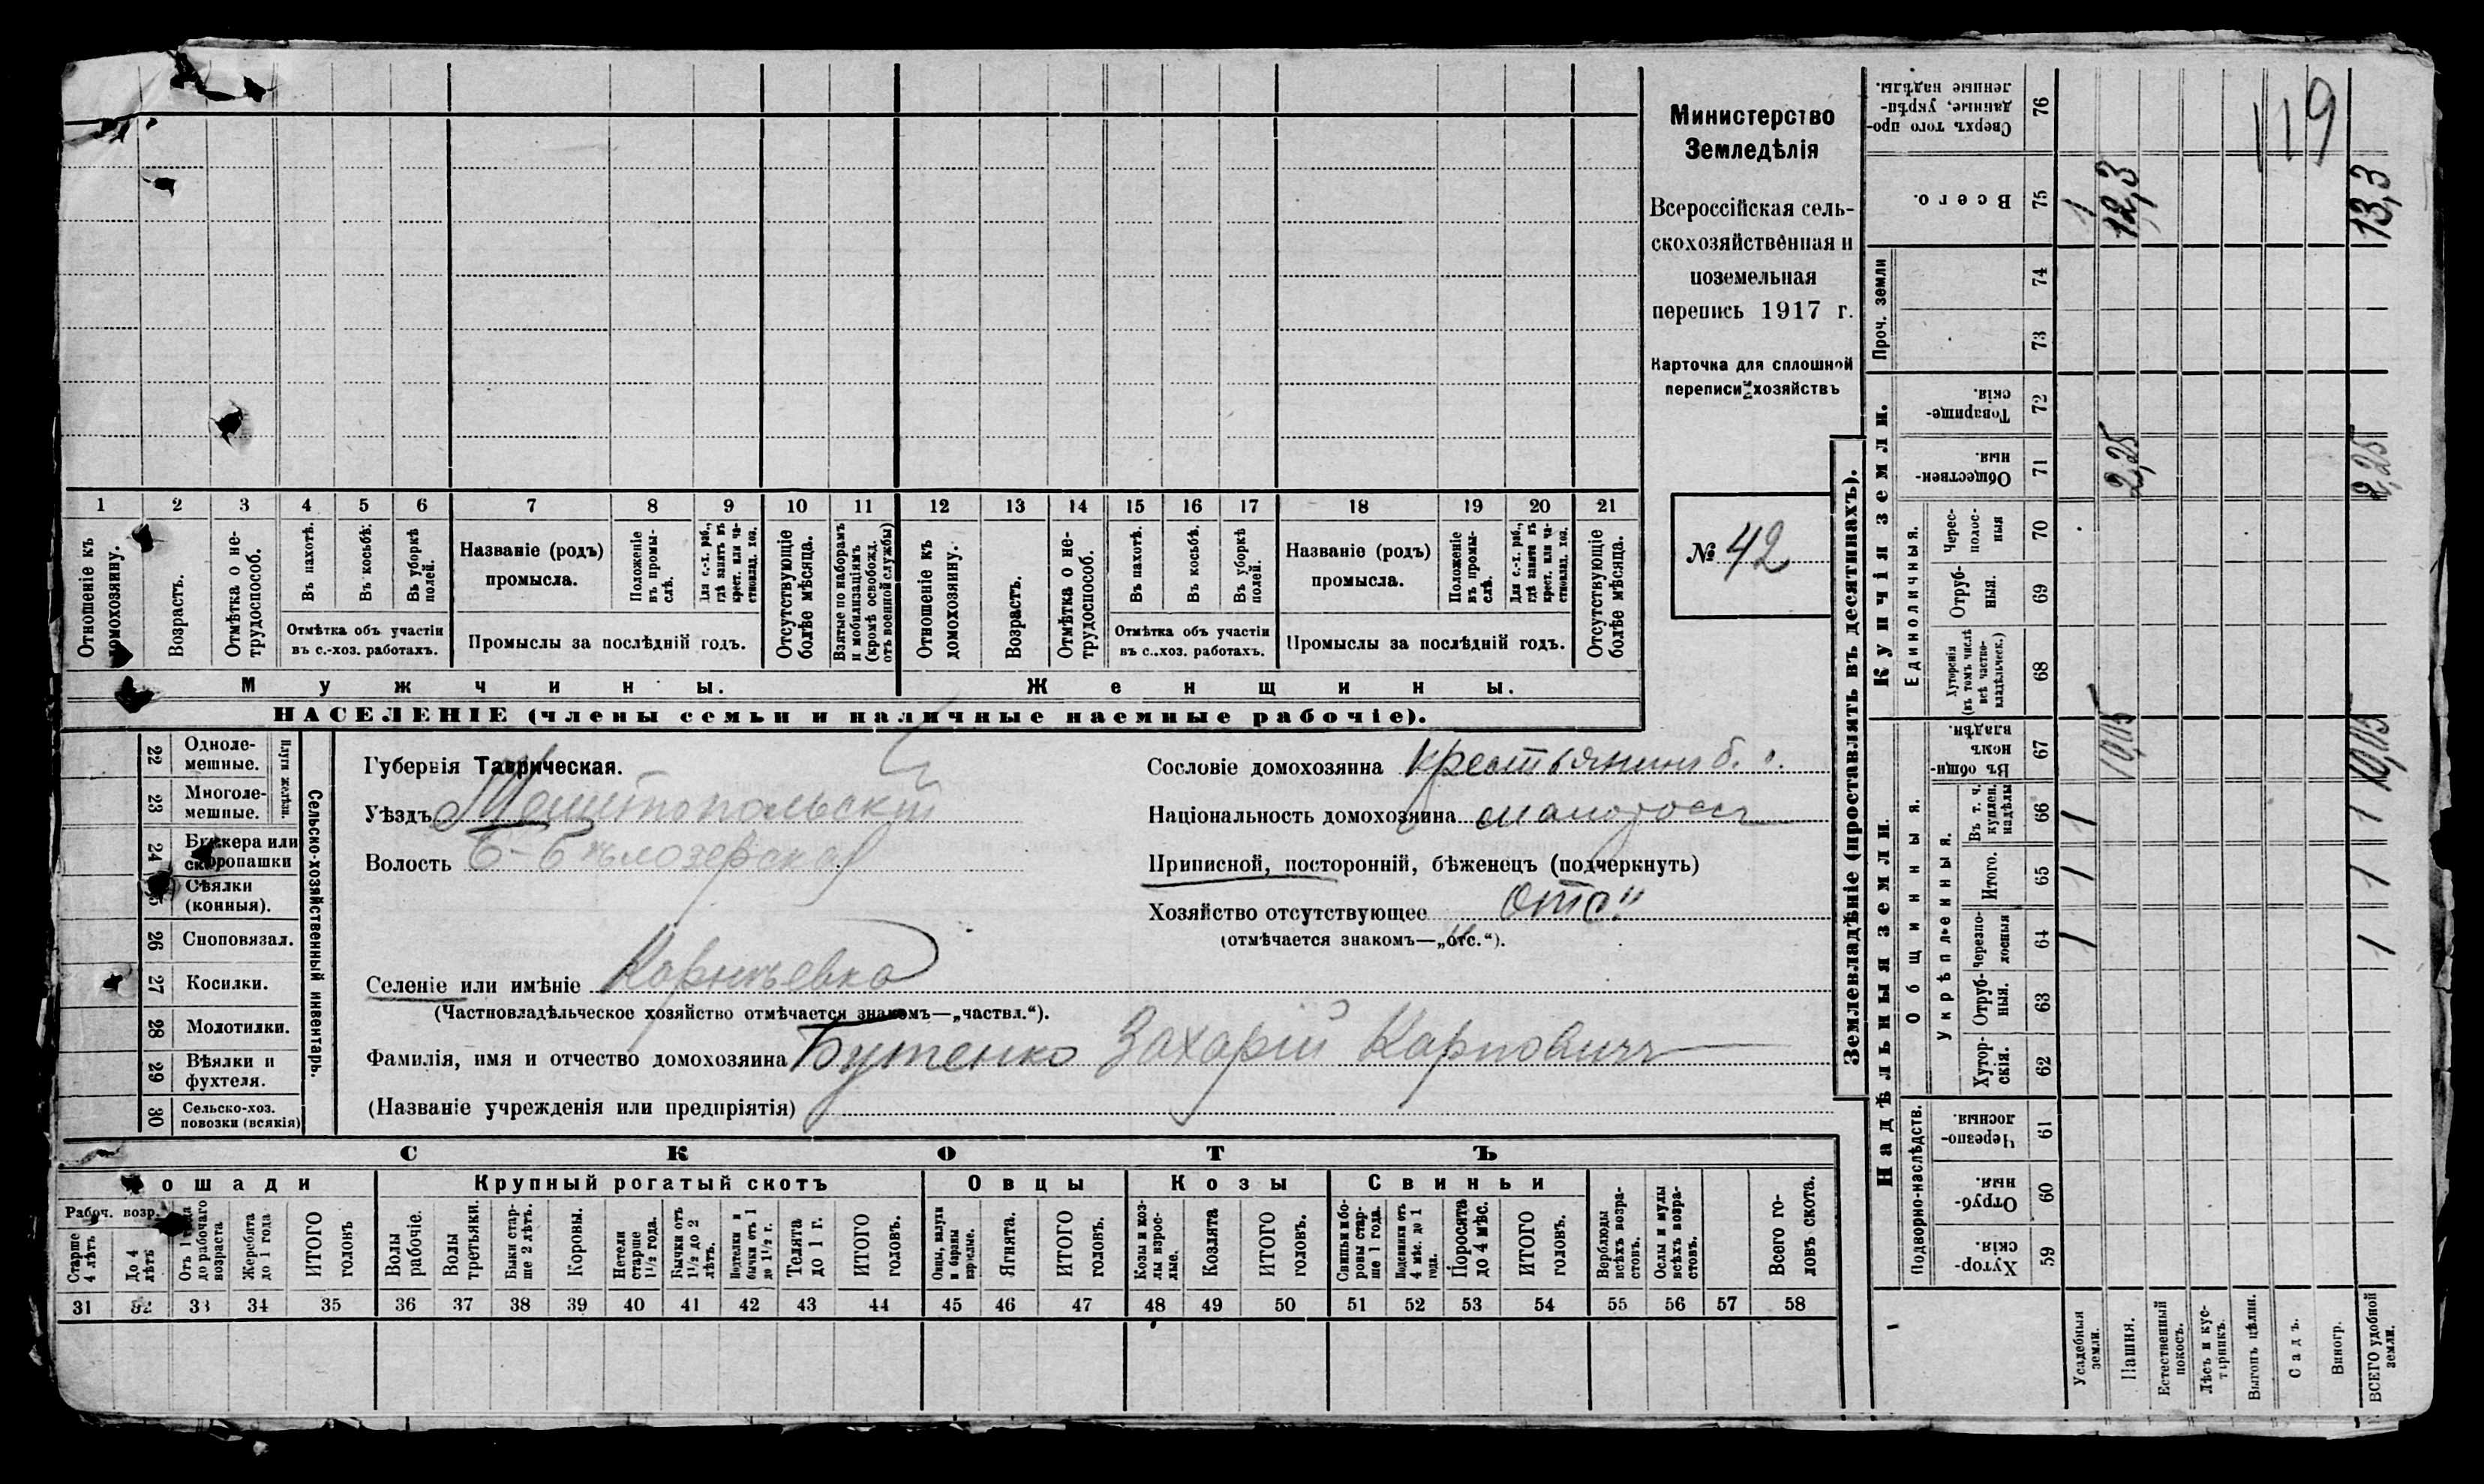 Министерство
Земледѣлія
Всероссійская сель-
скохозяйственная и
поземельная
перепись 1917 г.
Карточка для сплошной
переписи хозяйствъ
№ 42
1 2 3 4 5 6 7 8 9 10 11 12 13 14 15 16 17 18 19 20 21
Отношеніе къ домохозяину.
Возрастъ.
Отмѣтка о не-трудоспособ.
Въ пахотѣ.
Въ косьбѣ.
Въ уборкѣ полей.
Отмѣтка объ участіи
въ с.-хоз. работахъ.
Названіе (родъ)
промысла.
Положеніе въ промы-слѣ.
Для с.-х. раб., гдѣ занятъ въ крест. или ча-стновлад. хоз.
Промыслы за послѣдній годъ.
Отсутствующіе болѣе мѣсяца.
Взятые по наборамъ и мобилизаціямъ (кромѣ освобожд. отъ военной службы)
Отношеніе къ домохозяину.
Возрастъ.
Отмѣтка о не-трудоспособ.
Въ пахотѣ.
Въ косьбѣ.
Въ уборкѣ полей.
Отмѣтка объ участіи
въ с.-хоз. работахъ.
Названіе (родъ)
промысла.
Положеніе въ промы-слѣ.
Для с.-х. раб., гдѣ занята въ крест. или ча-стновлад. хоз.
Промыслы за послѣдній годъ.
Отсутствующіе болѣе мѣсяца.
Мужчины.
Женщины.
НАСЕЛЕНІЕ (члены семьи и наличные наемные рабочіе).
Сельско-хозяйственный инвентарь.
Плуги желѣзн.
22 Одноле-мешные.
23 Многоле-мешные.
24 Буккера или скоропашки
Сѣялки (конныя).
26 Сноповязал.
27 Косилки.
28 Молотилки.
29 Вѣялки и фухтеля.
30 Сельско-хоз. повозки (всякія)
Губернія Таврическая.
Уѣздъ Мелитопольскій
Волость Б-Бѣлозерская
Селеніе или имѣніе
(Частновладѣльческое хозяйство отмѣчается знакомъ—„частвл.“).
Фамилія, имя и отчество домохозяина Бутенко Захарій Карповичъ
(Названіе учрежденія или предпріятія)
Сословіе домохозяина крестьянинъ б.
Національность домохозяина малоросс
Приписной, посторонній, бѣженецъ (подчеркнуть)
Хозяйство отсутствующее отс."
(отмѣчается знакомъ—„отс.“).
СКОТЪ
Лошади
Рабоч. возр.
Старше 4 лѣтъ
До 4 лѣтъ
Отъ 1 года до рабочаго возраста
Жеребята до 1 года
ИТОГО головъ
Крупный рогатый скотъ
Волы рабочіе.
Волы третьяки.
Быки стар-ше 2 лѣтъ.
Коровы.
Нетели старше 1½ года.
Бычки отъ 1½ до 2 лѣтъ.
Подтелки и бычки отъ 1 до 1½ г.
Телята до 1 г.
ИТОГО головъ.
Овцы
Овцы, валухи и бараны взрослые.
Ягнята.
ИТОГО головъ.
Козы
Козы и коз-лы взрос-лые.
Козлята
ИТОГО головъ.
Свиньи
Свиньи и бо-ровы стар-ше 1 года.
Подсвинки отъ 4 мѣс. до 1 года.
Поросята до 4 мѣс.
ИТОГО головъ.
Верблюды всѣхъ возра-стовъ.
Ослы и мулы всѣхъ возра-стовъ.
Всего го-ловъ скота.
31 32 33 34 35 36 37 38 39 40 41 42 43 44 45 46 47 48 49 50 51 52 53 54 55 56 57 58
Землевладѣніе (проставлять въ десятинахъ).
Надѣльныя земли.
Подворно-наслѣдств.
Хутор-скія. 59
Отруб-ныя. 60
Черезпо-лосныя. 61
Общинныя.
Укрѣпленныя.
Хутор-скія. 62
Отруб-ныя. 63
Черезпо-лосныя 64
Итого. 65
Въ т. ч. куплен. надѣлы 66
Въ общин-номъ владѣн. 67
Купчія земли.
Единоличныя.
Хуторскія (въ томъ числѣ всѣ частно-владѣльческ.) 68
Отруб-ныя. 69
Черес-полос-ныя 70
Обществен-ныя. 71
Товарище-скія. 72
Проч. земли
73
74
Всего. 75
Сверхъ того про-данные, укрѣп-ленные надѣлы. 76
Усадебныя земли. 1 1 1 1
Пашня. 10,05 2,25 12,3
Естественный покосъ.
Лѣсъ и кус-тарникъ.
Выгонъ цѣлин.
Садъ.
Виногр.
ВСЕГО удобной земли. 1 1 1 10,05 2,25 13,3
119